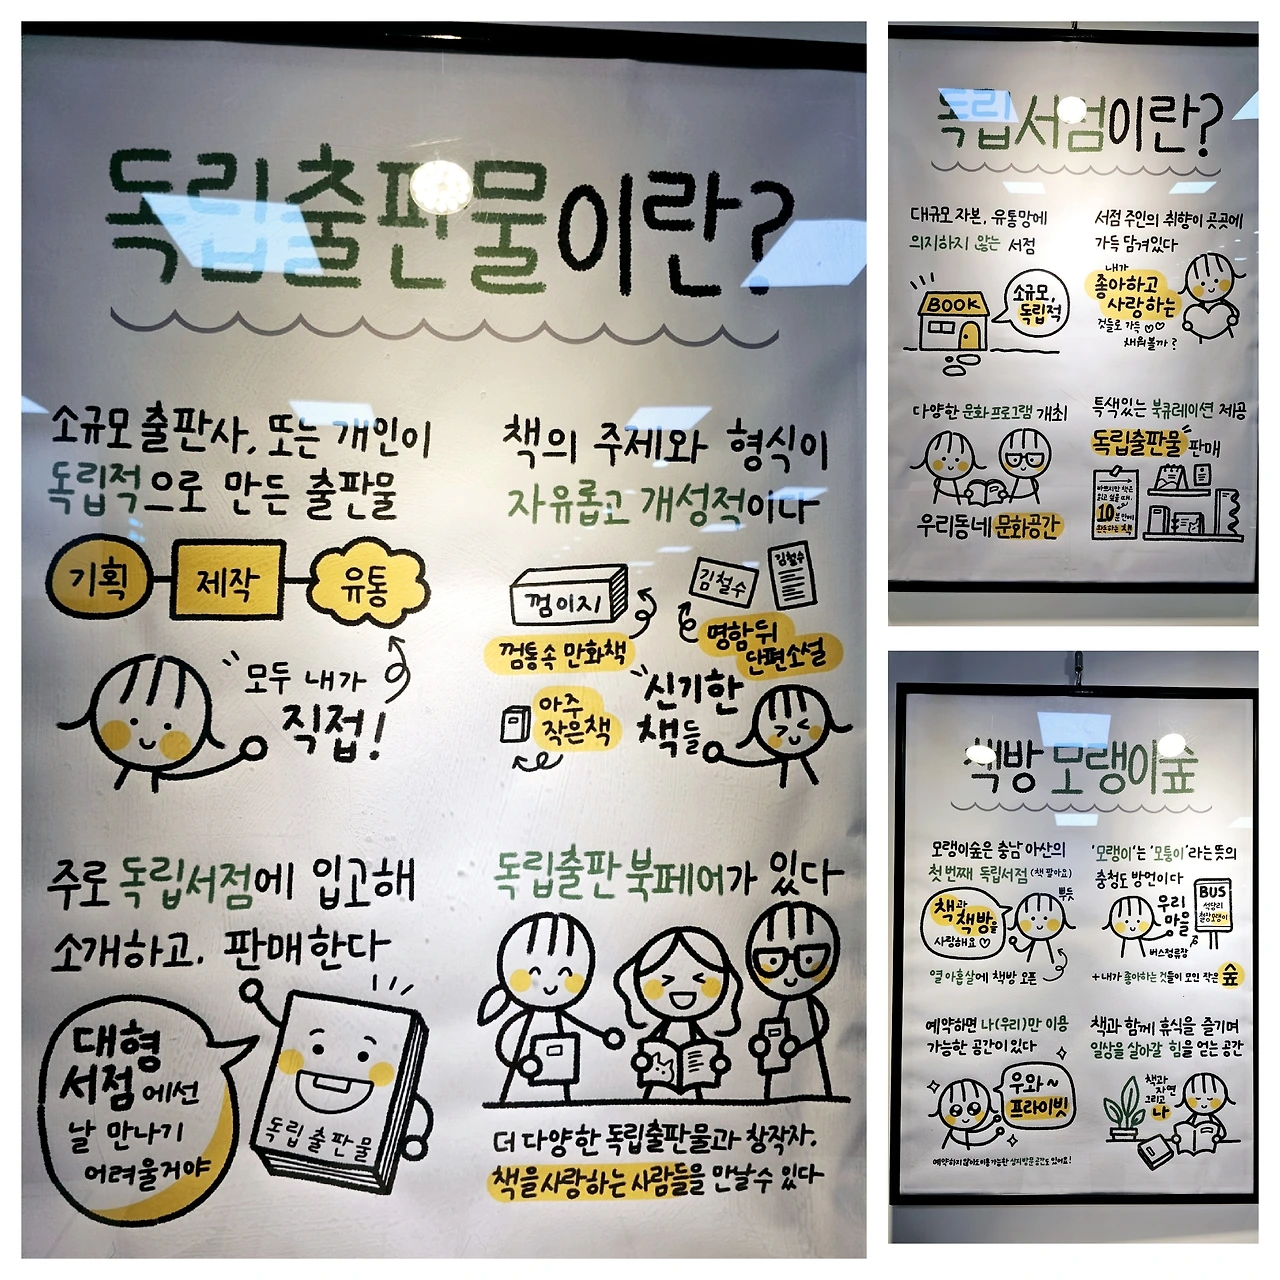 독립출판물이란?
소규모 출판사, 또는 개인이
독립적으로 만든 출판물
기획 제작 유통
모두 내가
직접!
책의 주제와 형식이
자유롭고 개성적이다
껌이지
껌통속 만화책
김철수
김철수
명함 뒤
단편소설
아주
작은책
신기한
책들
주로 독립서점에 입고해
소개하고, 판매한다
대형
서점에선
날 만나기
어려울거야
독립출판물
독립출판 북페어가 있다
더 다양한 독립출판물과 창작자,
책을 사랑하는 사람들을 만날 수 있다
독립서점이란?
대규모 자본, 유통망에
의지하지 않는 서점
BOOK
소규모,
독립적
서점 주인의 취향이 곳곳에
가득 담겨있다
내가
좋아하고
사랑하는
것들로 가득 ♡♡
채워볼까?
다양한 문화 프로그램 개최
우리동네 문화공간
특색있는 북큐레이션 제공
독립출판물 판매
바쁘지만 책은
읽고 싶을 때,
10분만에
완독하는 책
책방 모랭이숲
모랭이숲은 충남 아산의
첫 번째 독립서점 (책 팔아요)
책과
책방을
사랑해요 ♡
뿌듯
열아홉살에 책방 오픈
'모랭이'는 '모퉁이'라는 뜻의
충청도 방언이다
우리
마을
버스정류장
BUS
+ 내가 좋아하는 것들이 모인 작은 숲
예약하면 나(우리)만 이용
가능한 공간이 있다
우와~
프라이빗
예약하지 않아도 이용 가능한 상시 방문 공간도 있어요!
책과 함께 휴식을 즐기며
일상을 살아갈 힘을 얻는 공간
책과
자연
그리고
나